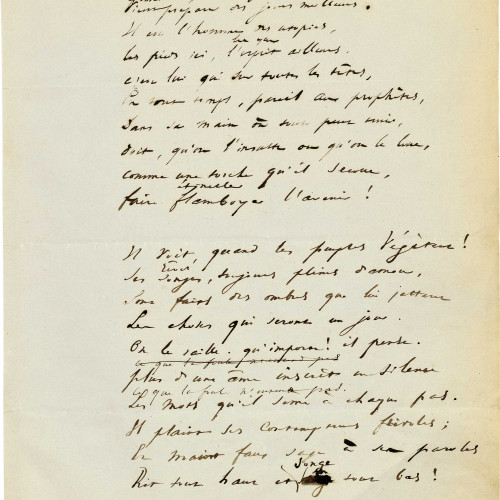 Vient préparer des jours meilleurs.
Il est l'homme des utopies,
les yeux
les pieds ici, l'esprit ailleurs.
c'est lui qui sur toutes les têtes,
En tout temps, pareil aux prophètes,
Dans sa main où tout peut tenir,
Doit, qu'on l'insulte ou qu'on le loue,
comme une torche qu'il secoue,
étinceler
faire flamboyer l'avenir !
Il voit, quand les peuples végètent !
Ses songes, toujours pleins d'amour,
Sont faits des ombres que lui jettent
Les choses qui seront un jour.
On le raille. qu'importe ! il pense.
ce que la foule n'entend pas
plus d'une âme inscrit en silence
ce que la foule n'entend pas.
Les mots qu'il sème à chaque pas.
Il plaint ses contempteurs frivoles ;
Et maint faux sage à ses paroles
songe
Rit tout haut et tout bas !